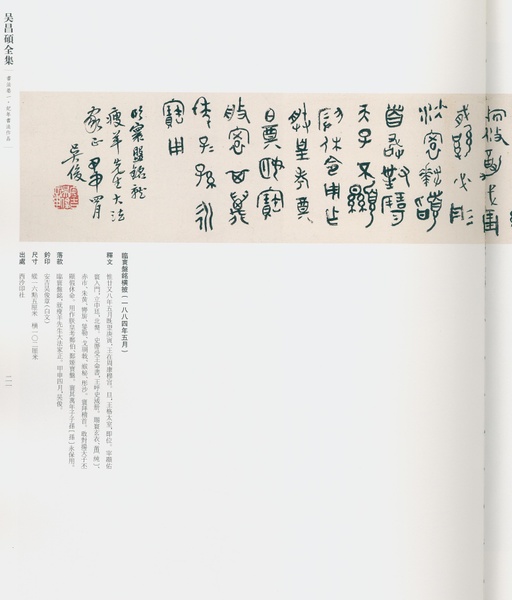 吴昌碩全集
書法卷一·紀年書法作品
沙寰拜
首敢對揚
天子不顯
休令用乍
朕皇考奠
寶
寰其萬
年子孫永
寶用
臨寰盤銘
瘦羊先生大法
家正 甲申四月
吳俊
臨寰盤銘橫披(一八八四年五月)
釋文 惟廿又八年五月既望庚寅,王在周康穆宮。旦,王格大室,即位。宰頵佑
寰入門,立中廷,北嚮。史黹受王命書,王呼史減冊,賜寰玄衣、黹(純)、
赤巿、朱黃、鑾旂、戈琱、彤沙。寰拜稽首,敢對揚天子丕
顯假休命,用作朕皇考鄭伯、鄭姬寶盤。寰其萬年子子孫[孫]永保用。
落款 臨寰盤銘,瘦羊先生大法家正。甲申四月,吳俊。
鈐印 安吉吳俊章(白文)
尺寸 縱一六點五厘米 橫一〇二厘米
出處 西泠印社